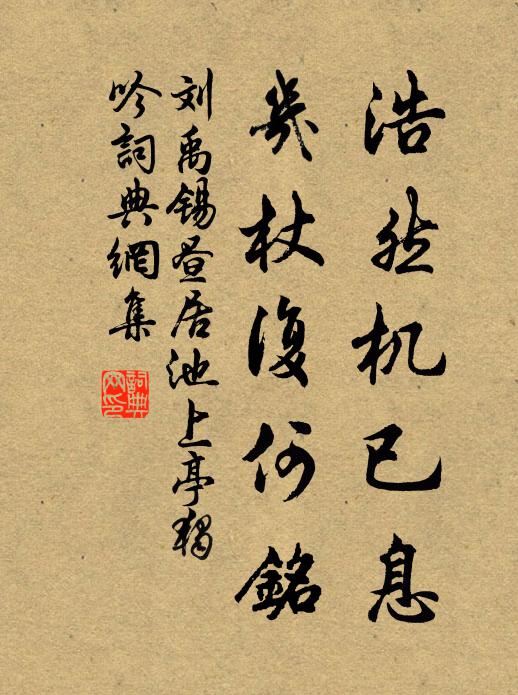 浩然机已息
几杖復何銘
刘禹锡昼居池上亭独
吟詞典網集
詞典網印